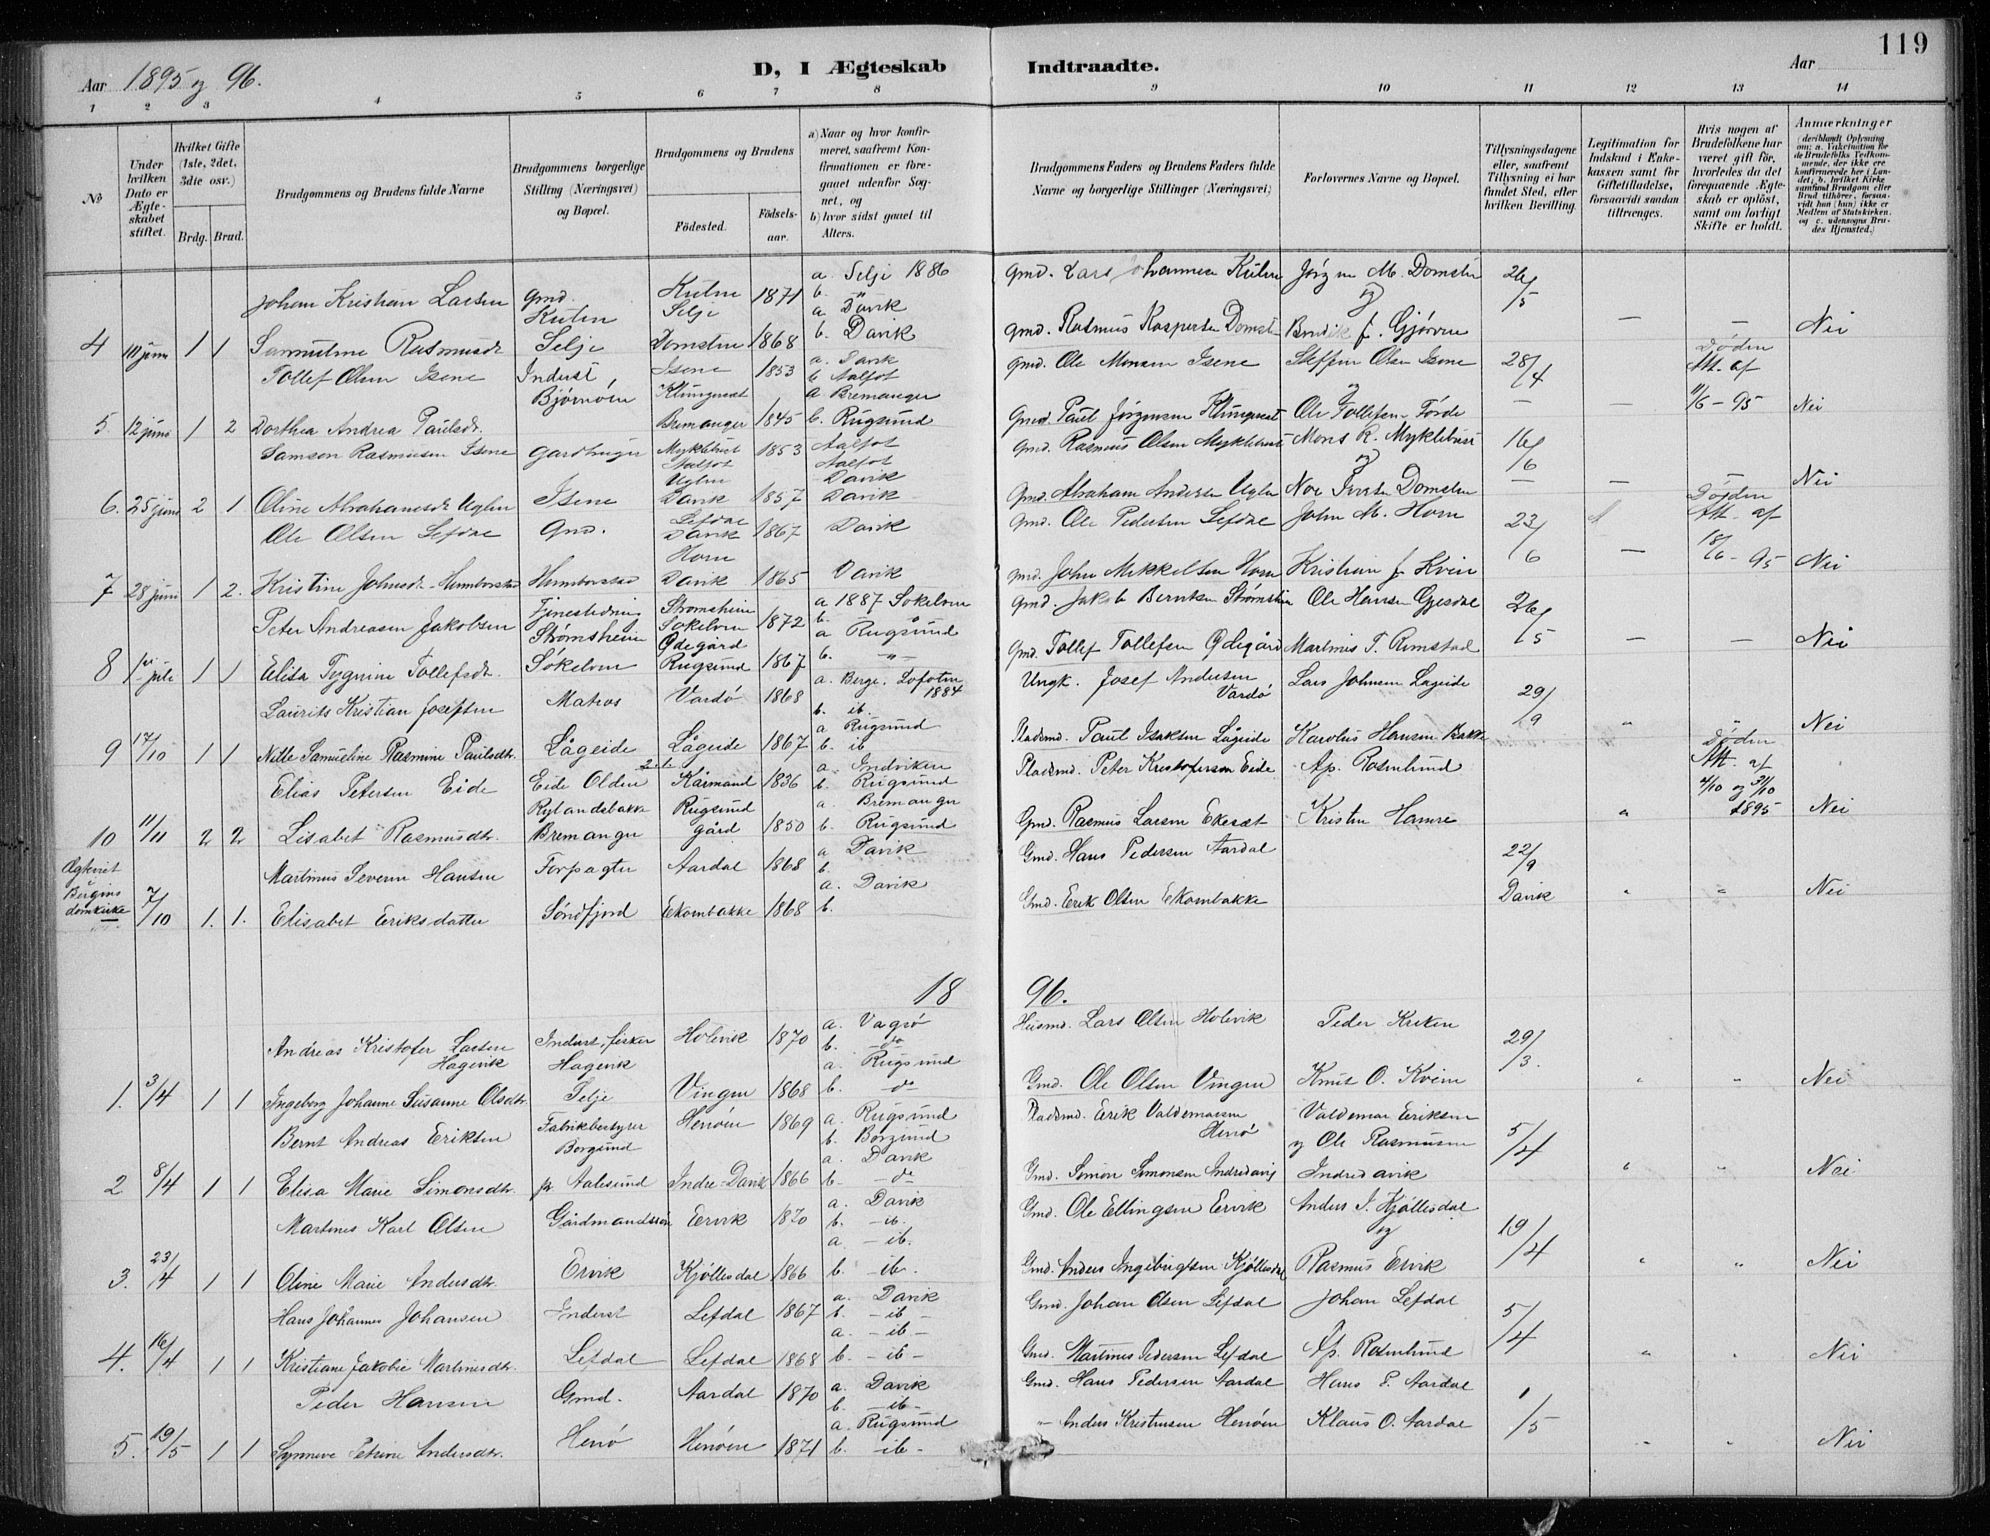 119
Aar 1895 og 96.
D, I Ægteskab Indtraadte.
Aar
1 2 3 4 5 6 7 8 9 10 11 12 13 14
No
Under hvilken Dato er Ægteskabet stiftet.
Hvilket Gifte (1ste, 2det, 3die osv.)
Brdg. Brud.
Brudgommens og Brudens fulde Navne
Brudgommens borgerlige Stilling (Næringsvei) og Bopæl.
Brudgommens og Brudens
Födested.
Födselsaar.
a) Naar og hvor konfirmeret, saafremt Konfirmationen er foregaaet udenfor Sognet, og
b) hvor sidst gaaet til Alters.
Brudgommens Faders og Brudens Faders fulde Navne og borgerlige Stillinger (Næringsvei)
Forlovernes Navne og Bopæl.
Tillysningsdagene eller, saafremt Tillysning ei har fundet Sted, efter hvilken Bevilling.
Legitimation for Indskud i Enkekassen samt for Giftetilladelse, forsaavidt saadan tiltrænges.
Hvis nogen af Brudefolkene har været gift för, hvorledes da det foregaaende Ægteskab er oplöst, samt om lovligt Skifte er holdt.
Anmærkninger (deriblandt Oplysning om: a. Vakcination for de Brudefolks Vedkommende, der ikke ere konfirmerede her i Landet; b. hvilket Kirkesamfund Brudgom eller Brud tilhörer, forsaavidt han (hun) ikke er Medlem af Statskirken, og c. udensogns Brudes Hjemsted.)
Johan Kristian Larsen Gmd. Kuten 1871 a. Selje 1886 Gmd. Lars Johannesen Kuten Jørgen M. Domsten 26/5
Kuten Selje b. "
og
4 10 juni 1 1 Rasmusdr. Selje Domsten 1868 a Davik b. Davik Gmd. Rasmus Kaspersen Domst. f. Gjørven — — Nei
Tollef Olsen Isene Inderst Isene 1853 a. Davik b Aalfot Gmd. Ole Monsen Isene Steffen Olsen Isene 28/4 Döden Att. af
Bjørnöen og
5. 12 juni 1 2 Dorthea Andrea Paulsdr. Bremanger 1845 a Bremanger b. Rugsund Gmd. Paul Jörgensen Ole Tollefsen Förde — — 11/6 - 95 Nei
Samson Rasmusen Isene Gardbruger Myklebust Aalfot 1853 Aalfot Aalfot Gmd. Rasmus Olsen Myklebust Mons R. Myklebust 16/6
og
6. 25 juni 2 1 Oline Abrahamsdr. Uglen Isene Uglen Davik 1857 Davik Davik Gmd. Abraham Andersen Uglen Domsten — — — Nei
Ole Olsen Lefdal Gmd. Lefdal Davik 1867 Davik Gmd. Ole Pedersen Lefdal John M. Horn 23/6 Döden Att. af
7 28 juni 1 2. Kristine Johnsdr. Horn Davik 1865 Davik Gmd. John Mikkelsen Horn Kristian J. Kvien — 18/6 - 95 Nei
Peter Andreasen Jakobsen Tjenestedreng Strømsheim Sokelven 1872 a 1887 Sokelven b. Gmd. Jakob Berntsen Strømsheim Ole Hansen Gjesdal 26/5
Strømsheim Ødegård
8 1ste juli 1 1 Elisa Tollefsdr. Søkelven Rugsund 1867 a Rugsund b. — " — Gmd. Tollef Tollefsen Ødegård Martinus T. Rimstad — — Nei
Laurits Kristian Josefsen Matros Vardö 1868 a. Berge. Lofoten 1884 b. ib. Ungk. Josef Andersen Vardö Lars Johnsen Lageide 29/9
9 17/10 1 1 Nille Samueline Rasmine Paulsdtr. Lågeide Lågeide 1867 a Rugsund b. ib Pladsmd. Paul Isaksen Lågeide Karolus Hansen Bakke " " Nei
Elias Petersen Eide Eide Olden Kårmand 1836 a. Indviken b. Rugsund Pladsmd. Peter Kristofersen Eide Ap. Rosenlund Döden Att. af
Rylandsbakke Rugsund
10 11/11 2 2 Lisabet Rasmusdtr. Bremanger gård 1850 a. Bremanger b. Rugsund Gmd. Rasmus Larsen Ekesæt Kristen Hamre " 4/10 og 31/10 1895 Nei
Martinus Severin Hansen Forpagter Aardal 1868 a Davik b. Gmd. Hans Pedersen Aardal 22/9
Ægteviet i Bergens domkirke 7/10 1. 1. Elisabet Eriksdatter Söndfjord Ekornbakke 1868 a. Davik b. Gmd. Erik Olsen Ekornbakke Davik " " Nei
18 96.
Andreas Kristofer Larsen Hagevik Inderst, fisker Holevik 1870 a. Vagsö b. do Husmd. Lars Olsen Holevik Peder Kriken 29/3.
Hagevik
1. 3/4 1 1 Ingeborg Johanne Susanne Olsdtr. Selje Vingen 1868 a. Rugsund b. — do Gmd. Ole Olsen Vingen Knut O. Kvien " " Nei
Bernt Andreas Eriksen Fabrikbestyrer Henöen 1869 a. Rugsund b. Borgund Pladsmd. Erik Valdemarsen Henö Valdemar Eriksen 5/4
Borgund og Ole Rasmusen
2 8/4 1 1 Elisa Marie Simonsdtr. pr Aalesund Indre-Davik 1866 a. Davik b. — do Gmd. Simon Simonsen Indredavig Indredavik " " Nei
Martines Karl Olsen Gårdmandssön Ervik 1870 a. Davik b. — ib. Gmd. Ole Ellingsen Ervik Anders I. Kjöllesdal 19/4
og
3. 23/4 1 1 Oline Marie Andersdtr. Ervik Kjöllesdal 1866 a. — ib. b. — ib. Gmd. Anders Ingebrigtsen Kjöllesdal Rasmus Ervik " " Nei
Hans Johannes Johansen Inderst Lefdal 1867 a. Davik b. — ib — Gmd. Johan Olsen Lefdal Johan Lefdal 5/4
4. 16/4 1 1 Kristiane Jakobie Martinusdtr. Lefdal Lefdal 1868 a. — ib — b. — ib — Gmd. Martinus Pedersen Lefdal Ap. Rosenlund " " Nei
Peder Hansen Gmd. Aardal 1870 a. Davik b. — ib — Gmd. Hans Pedersen Aardal Hans P. Aardal 1/5
5. 19/5 1 1 Synneve Petrine Andersdtr. Henö Henöen 1871 a. Rugsund b. — ib — " Anders Kristensen Henöen Klaus O. Aardal " " Nei